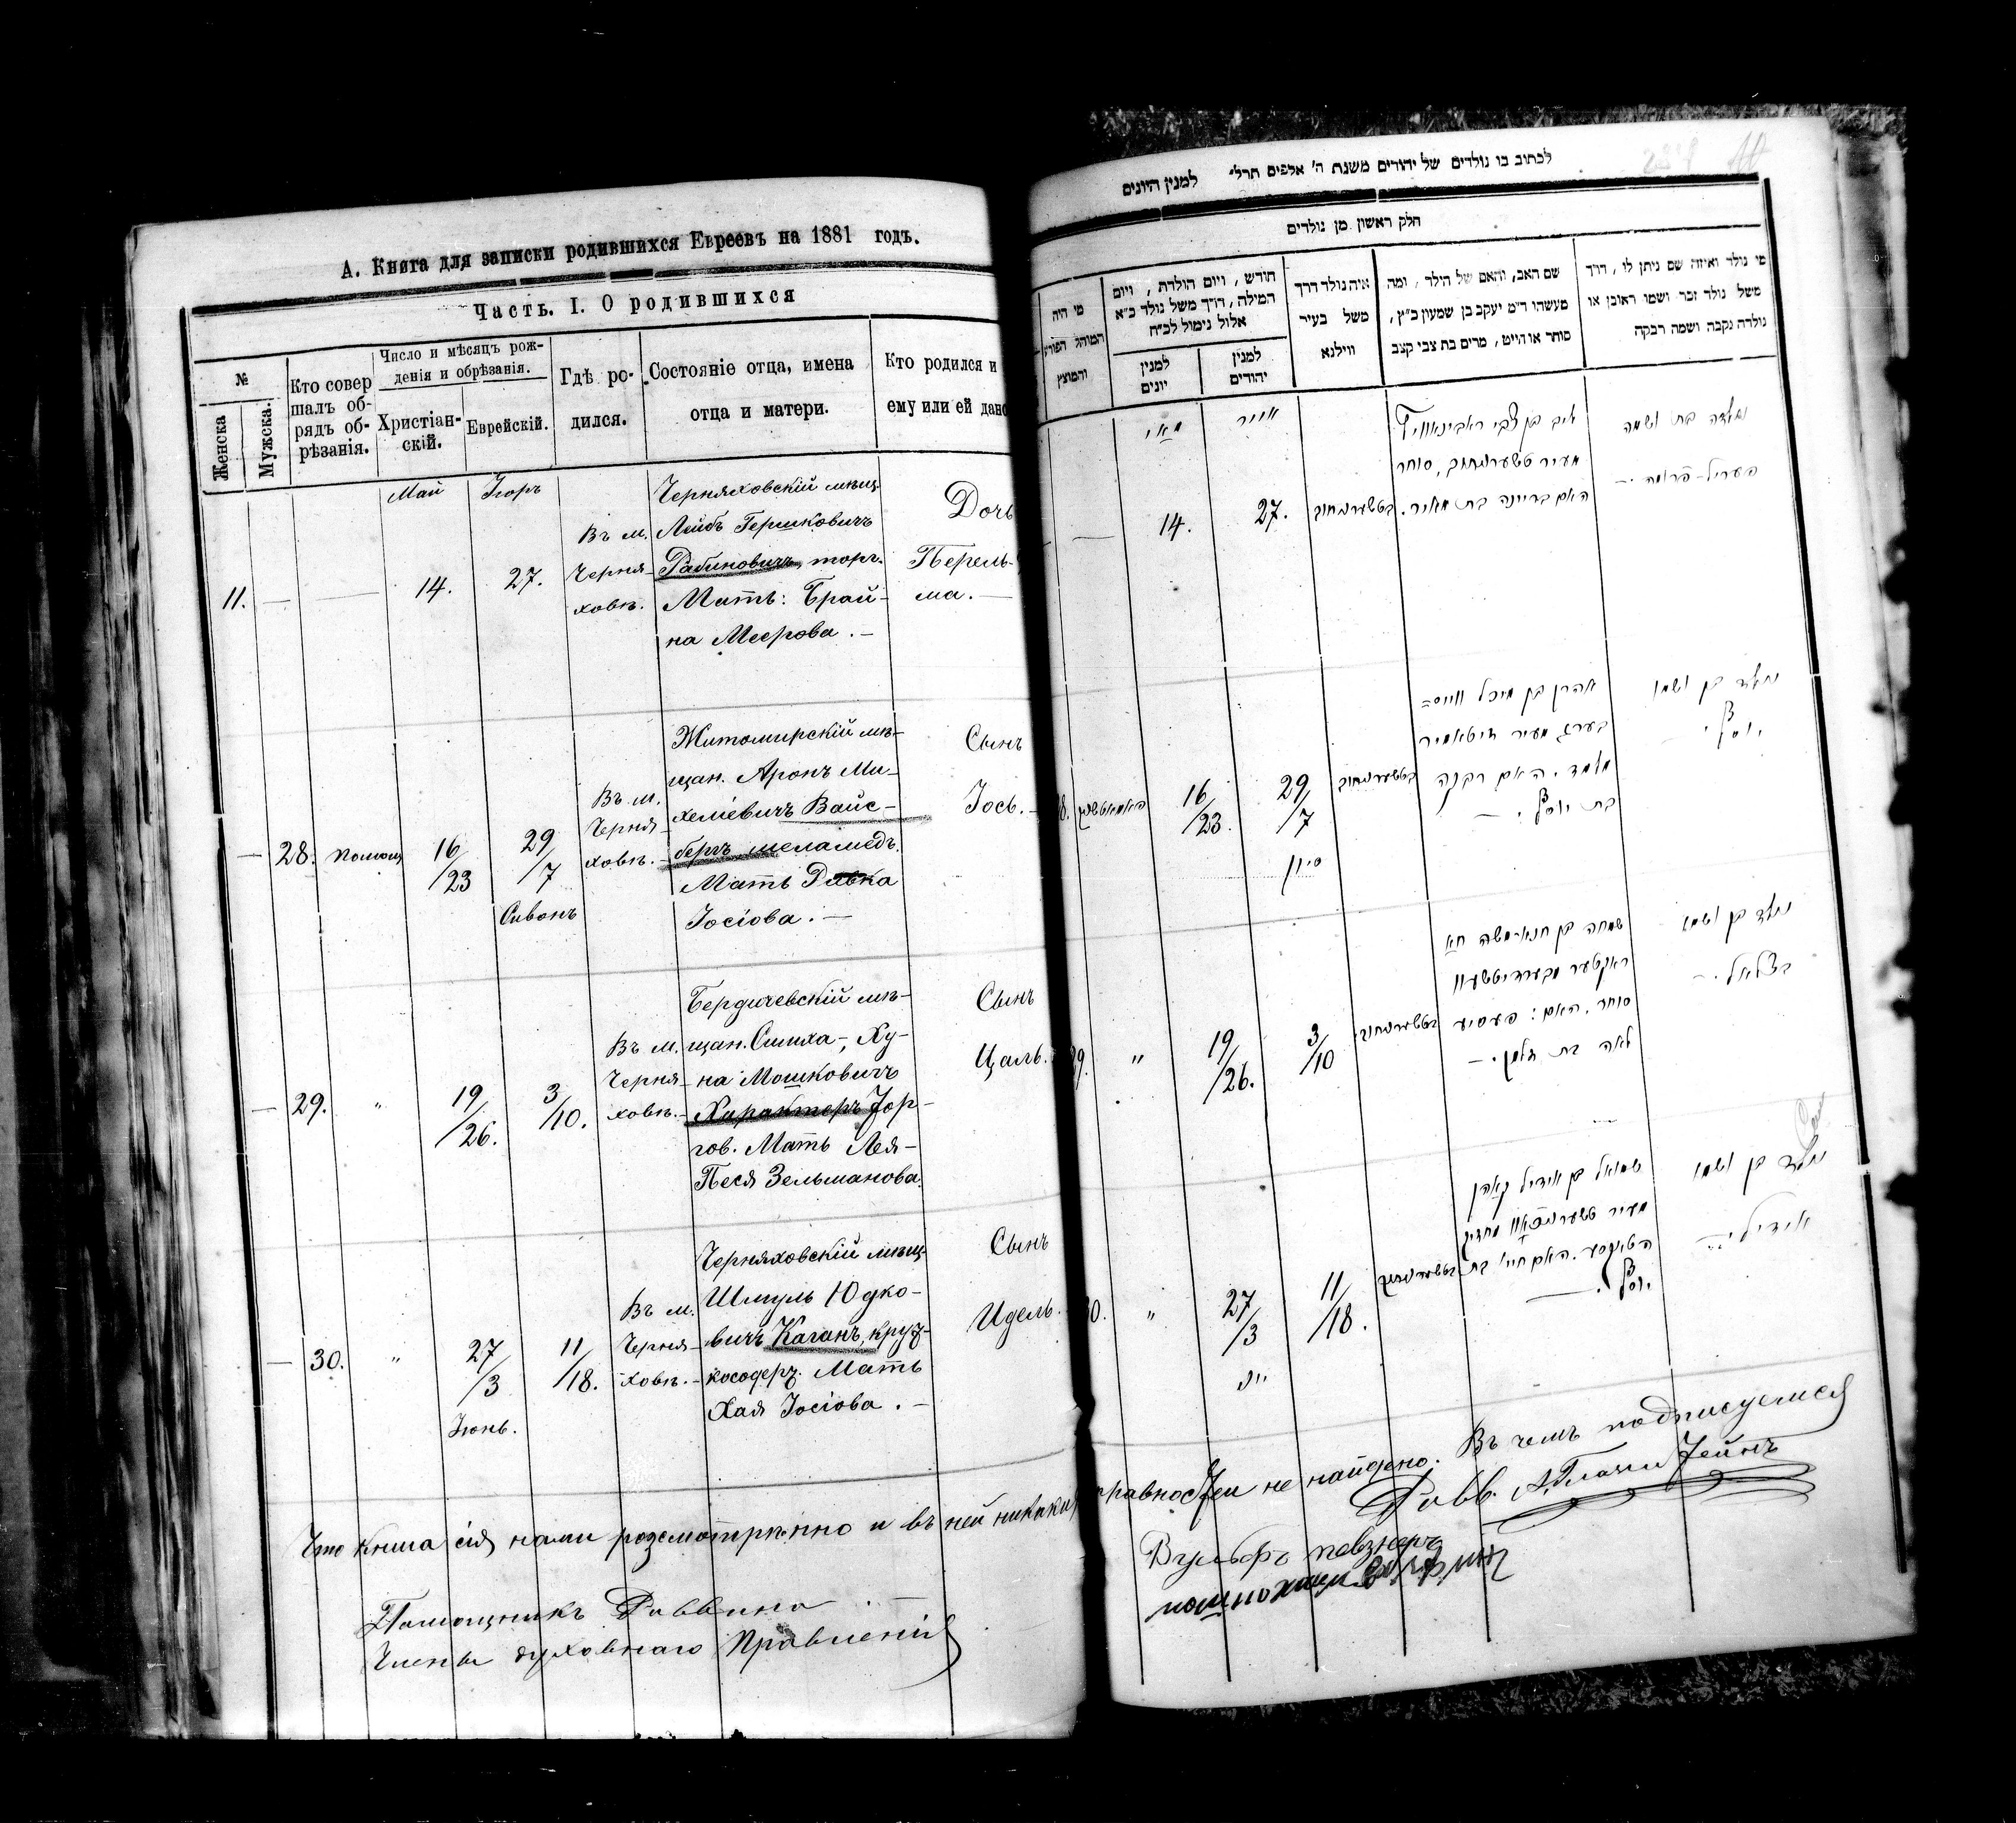 А. Книга для записки родившихся Евреевъ на 1881 годъ.
Часть. I. О родившихся
№
Женска
Мужска.
Кто совер
шалъ об-
рядъ об-
рѣзанія.
Число и мѣсяцъ рож-
денія и обрѣзанія.
Христіан-
скій.
Еврейскій.
Гдѣ ро-
дился.
Состояніе отца, имена
отца и матери.
Кто родился и
ему или ей дано
Май
Іюръ
11. — — 14. 27.
Въ м.
Черня-
ховѣ.
Черняховскій мѣщ
Лейбъ Гершковичъ
Рабиновичъ, торг.
Мать: Брай-
на Меерова. —
Дочь
Перель-
ма. —
— 28. помощ 16/23 29/7
Сивонъ
Въ м.
Черня-
ховѣ. —
Житомирскій мѣ-
щан. Аронъ Ми-
хеліевичъ Вайс-
бергъ меламедъ.
Мать Рывка
Іосіова. —
Сынъ
Іось. —
— 29. " 19/26. 3/10.
Въ м.
Черня-
ховѣ. —
Бердичевскій мѣ-
щан. Симха-, Ху-
на Мошковичъ
Характоръ Тор-
гов. Мать Лея-
Песя Зельманова.
Сынъ
Цаль.
— 30. " 27/3 11/18.
Іюнь.
Въ м.
Черня-
ховѣ. —
Черняховскій мѣщ
Шмуль Юдко-
вичъ Каганъ,
Мать
Хая Іосіова. —
Сынъ
Идель.
Что книга сія нами розсмотрѣнно и въ ней никаки
Помощникъ Раввина
Члены духовнаго Правленія
לכתוב בו נולדים של יהודים משנת ה' אלפים תרל" למנין היונים
חלק ראשון מן נולדים
מי נולד ואיזה שם ניתן לו, דו"ד
משל נולד זכר ושמו ראובן או
נולדה נקבה ושמה רבקה
שם האב, והאם של הילד, ומה
מעשהו ד"מ יעקב בן שמעון כ"ץ,
סוחר או הייט, מרים בת צבי קצב
איה נולד דרך
משל בעיר
ווילנא
חודש, ויום הולדת, ויום
המילה, דו"ך משל נולד כ"א
אלול נימול לכ"ח
למנין
יהודים
למנין
יונים
מי היה
המוהל הפורע
והמוצץ
נולדה בת ושמה
פעריל-
ליב בן צבי ראבינאוויץ
מעיר טשערנחוב, סוחר
האם בריינה בת מאיר.
בטשערנחוב
אייר
27.
מאי
14.
נולד בן ושמו
יוסף. —
אהרן בן מיכל ווייס=
בערג מעיר זיטאמיר
מלמד. האם רבקה
בת יוסף. —
בטשערנחוב
29/7
סיון
16/23.
נולד בן ושמו
בצלאל. —
סוחר. האם: פעסיע
לאה בת זלמן. —
בטשערנחוב
3/10
19/26.
"
נולד בן ושמו
אידיל. —
שמואל בן אידיל קאהן
האם חיי' בת
יוסף. —
בטשערנחוב
11/18.
27/3
"
יוני
правностей не найдено. Въ чемъ подписуемся
Равв.
Вульфъ певзнеръ